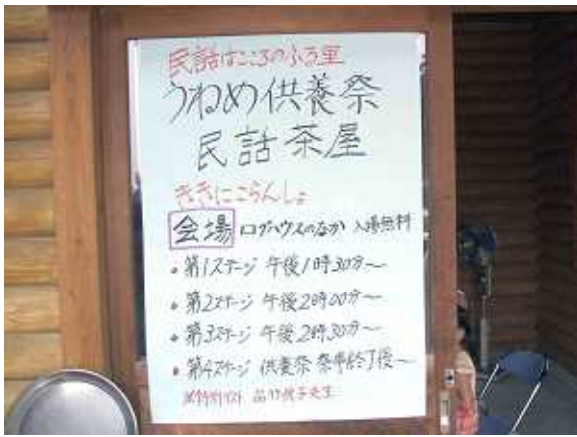 民話はこころのふる里
うねめ供養祭
民話茶屋
ききにこらんしょ
会場 ログハウスのなか 入場無料
・第1ステージ 午後1時30分〜
・第2ステージ 午後2時00分〜
・第3ステージ 午後2時30分〜
・第4ステージ 供養祭 祭事終了後〜